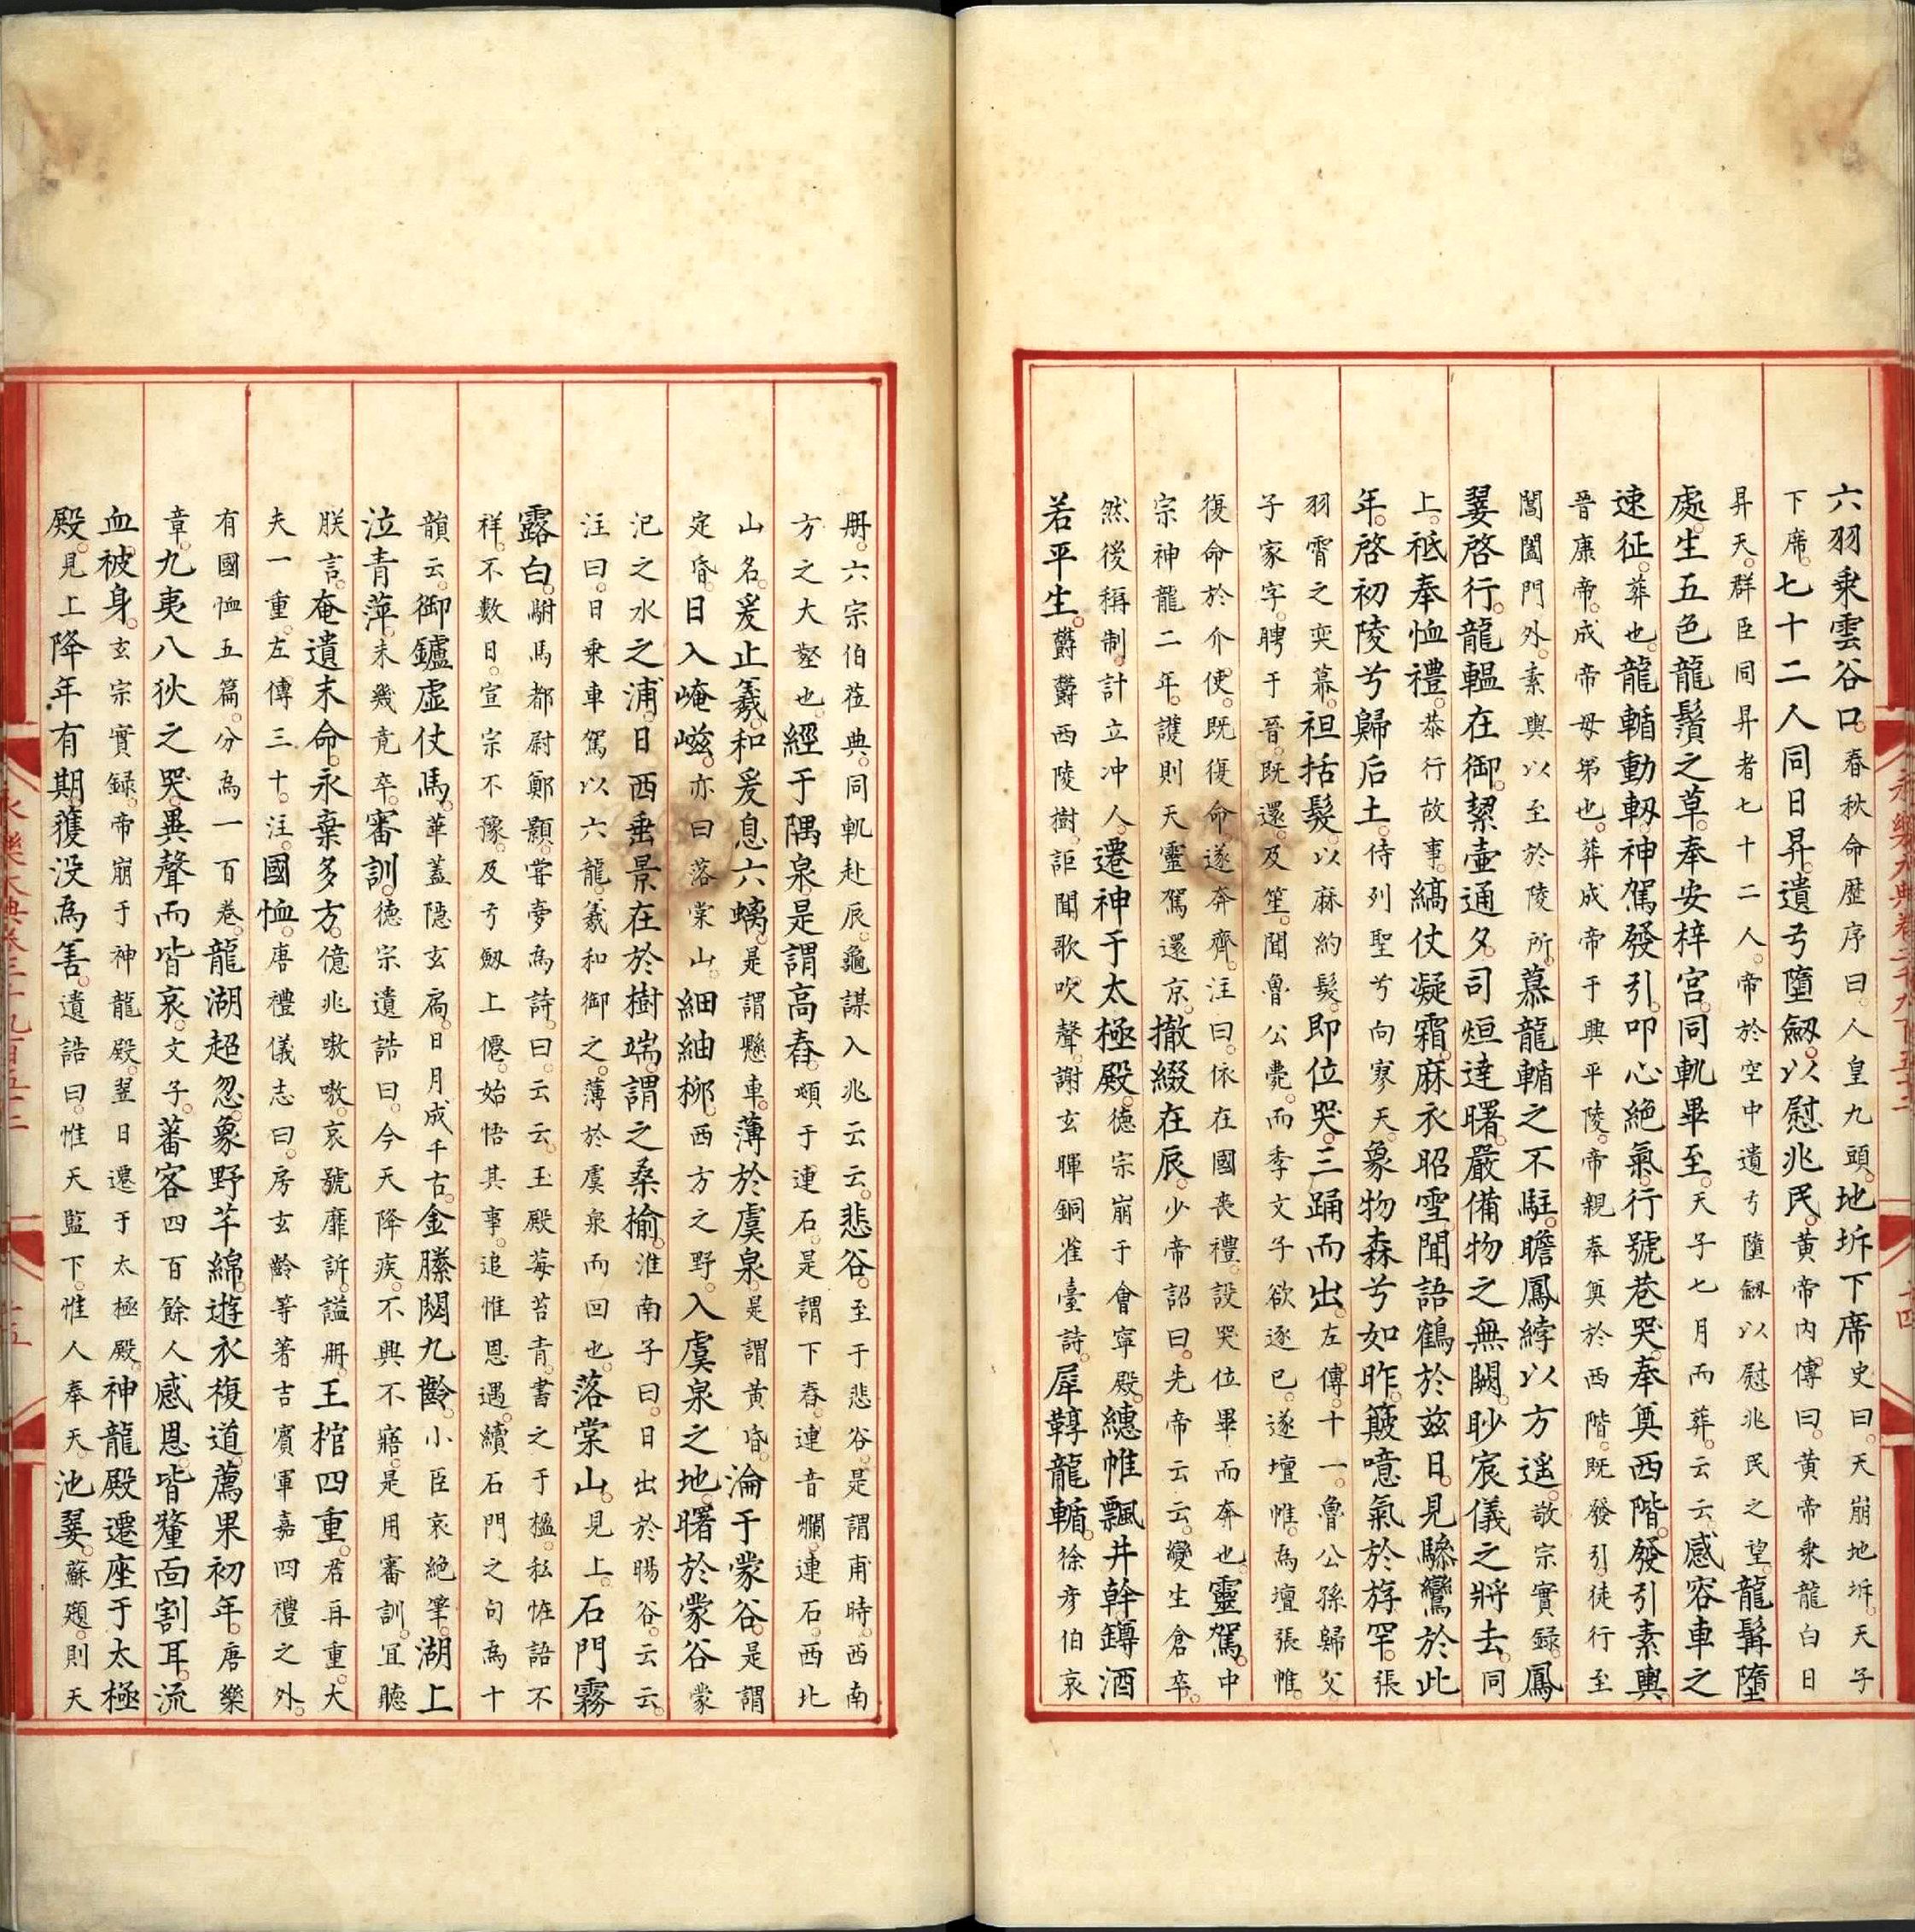 六羽乗雲谷口。春秋命歴序曰。人皇九頭。地坼下席史曰。天崩地坼。天子
下席。七十二人同日昇。遺弓墮劔。以慰兆民。黃帝内傳曰。黃帝乗龍白日
昇天。群臣同昇者七十二人。帝於空中遺弓墮劔以慰兆民之望。龍髯墮
處。生五色龍鬚之草。奉安梓宮。同軌畢至。天子七月而葬。云云。感容車之
速征。葬也。龍輴動軔。神駕發引。叩心絕氣。行號巷哭。奉奠西階。發引素輿
晉康帝。成帝母弟也。葬成帝于興平陵。帝親奉奠於西階。既發引。徒行至
閶闔門外。素輿以至於陵所。慕龍輴之不駐。瞻鳳綍以方遙。敬宗實錄。鳳
翣啓行。龍轀在御。挈壺通夕。司烜達曙。嚴備物之無闕。眇宸儀之將去。同
上。祗奉恤禮。恭行故事。縞仗凝霜。麻衣昭雪。聞語鶴於兹日。見驂鸞於此
年。啓初陵兮歸后土。侍列聖兮向寥天。象物森兮如昨。簸噫氣於㳺罕。張
羽霄之奕幕。袒括髮。以麻約髮。即位哭。三踊而出。左傳。十一。魯公孫歸父
子家字。聘于晉。既還。及笙。聞魯公薨。而季文子欲逐已。遂壇帷。為壇張帷。
復命於介使。既復命。遂奔齊。注曰。依在國喪禮。設哭位畢而奔也。靈駕。中
宗神龍二年。護則天靈駕還京。撤綴在辰。少帝詔曰。先帝云云。變生倉卒。
然後稱制。計立冲人。遷神于太極殿。德宗崩于會寧殿。繐帷飄井幹。罇酒
若平生。欝欝西陵樹。詎聞歌吹聲。謝玄暉銅雀臺詩。犀鞟龍輴。徐彦伯哀
永樂大典卷二千九百五十二
十四
冊。六宗伯莅典。同軌赴辰。龜謀入兆云云。悲谷。至于悲谷。是謂甫時。西南
方之大壑也。經于隅泉。是謂高舂。頻于連石。是謂下舂。連音爛。連石。西北
山名。爰止羲和。爰息六螭。是謂懸車。薄於虞泉。是謂黃昏。淪于蒙谷。是謂
定昏。日入崦嵫。亦曰落棠山。細紬桞。西方之野。入虞泉之地。曙於蒙谷蒙
汜之水之浦。日西垂景在於樹端。謂之桑榆。淮南子曰。日出於暘谷。云云。
注曰。日乗車駕以六龍。羲和御之。薄於虞泉而回也。落棠山。見上。石門霧
露白。駙馬都尉鄭顥。嘗夢為詩。曰云云。玉殿莓苔青。書之于楹。私恠語不
祥。不數日。宣宗不豫。及弓劔上僊。始悟其事。追惟恩遇。續石門之句為十
韻云。御鑪虛仗馬。華蓋隱玄扃。日月成千古。金縢閟九齡。小臣哀絕筆。湖上
泣青萍。未幾竟卒。審訓。德宗遺誥曰。今天降疾。不興不寤。是用審訓。宜聽
朕言。奄遺末命。永棄多方。億兆嗷嗷。哀號靡訴。謚冊。王棺四重。君再重。大
夫一重。左傳三十。注。國恤。唐禮儀志曰。房玄齡等著吉賓軍嘉四禮之外。
有國恤五篇。分為一百卷。龍湖超忽。象野芊綿。遊衣複道。薦果初年。唐樂
章。九夷八狄之哭。異聲而皆哀。文子。蕃客四百餘人感恩。皆剺面割耳。流
血被身。玄宗實錄。帝崩于神龍殿。翌日遷于太極殿。神龍殿遷座于太極
殿。見上降年有期。獲没為善。遺誥曰。惟天監下。惟人奉天。池翣。蘇頲。則天
永樂大典卷二千九百五十二
十五